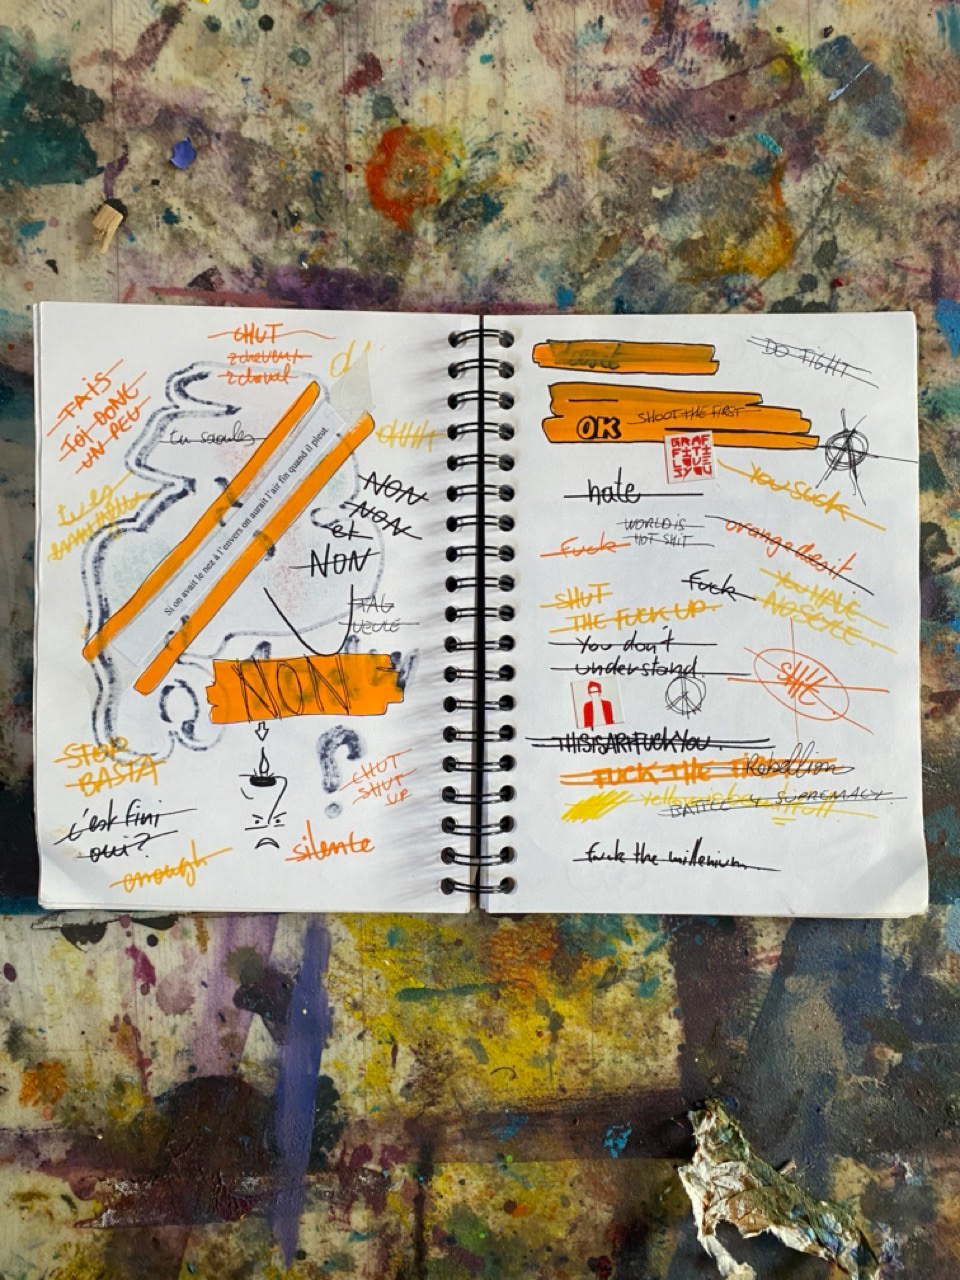 CHUT
2 cheveux
2 cheval
FAIS
TOI DONC
UN PEU
tu saoules
Si on avait le nez à l'envers on aurait l'air fin quand il pleut.
NON
NON
et
NON
TAG
UEULE
NON
STOP
BASTA
c'est fini
oui?
enough
?
CHUT
SHUT
UP
silente
DO FIGHT
OK SHOOT THE FIRST
A
GRAF
FITI
LOVE
SYOU
You suck
hate
WORLD IS
HOT SHIT
Fuck
Fuck
SHUT
THE FUCK UP
YOU HAVE
NO STYLE
You don't
understand.
SHIT
THIS IS ART FUCK YOU.
FUCK THE
Rebellion
BATTLE 4 SUPREMACY
fuck the millenium